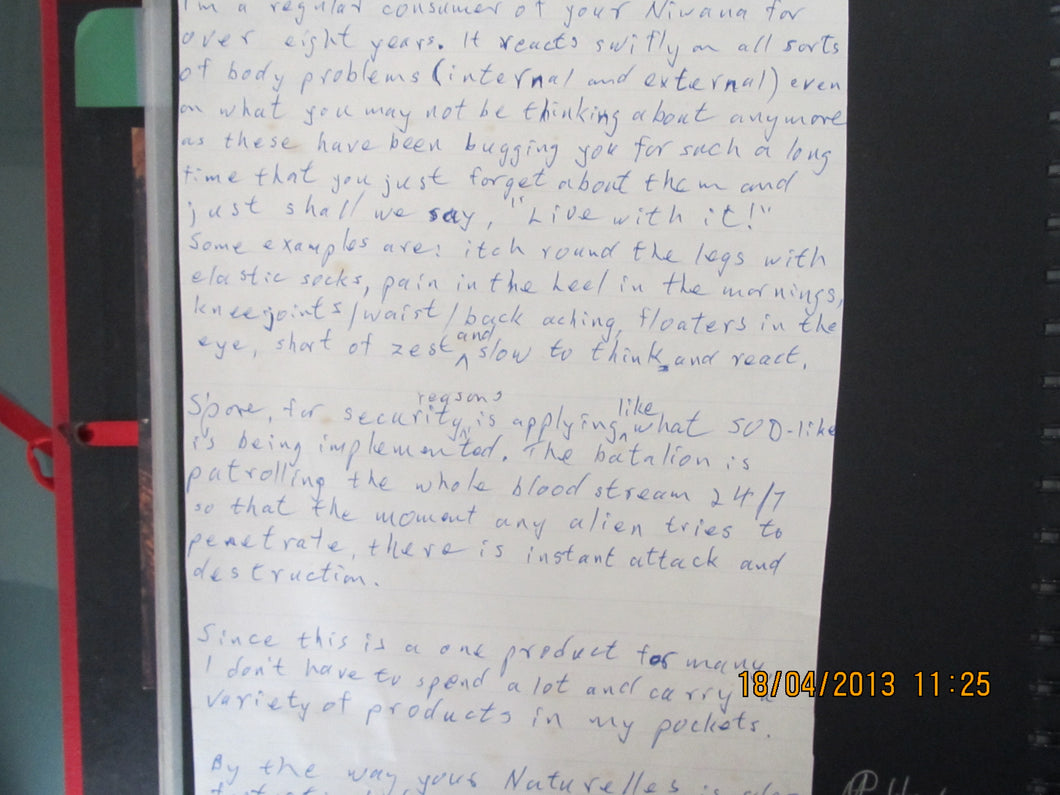 I'm a regular consumer of your Nirvana for
over eight years. It reacts swifly on all sorts
of body problems (internal and external) even
on what you may not be thinking about anymore
as these have been bugging you for such a long
time that you just forget about them and
just shall we say, "Live with it!"
Some examples are: itch round the legs with
elastic socks, pain in the heel in the mornings,
kneejoints/waist/back aching, floaters in the
eye, short of zest and slow to think and react.
S'pore, for security reasons is applying like what SOD-like
is being implemented. The batalion is
patrolling the whole blood stream 24/7
so that the moment any alien tries to
penetrate, there is instant attack and
destruction.
Since this is a one product for many
I don't have to spend a lot and carry a
variety of products in my pockets.
By the way your Naturelles is
18/04/2013 11:25